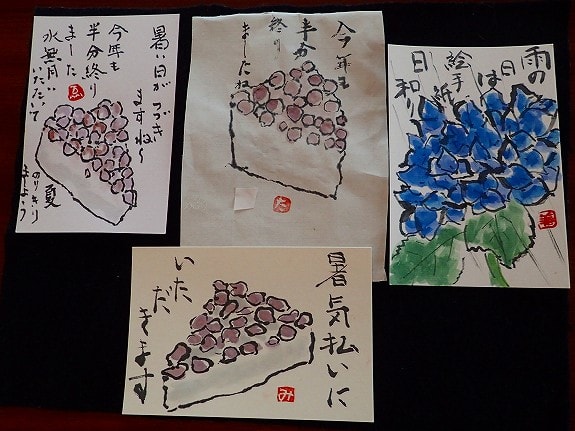 暑い日が
つづき
ますね〜
今年も
半分終り
ました
水無月
いただいて
夏
のりきり
ましょう
ゑ
今年も
半分
終り
ましたね
た
雨の
日は
絵手紙
日和り
暑気払いに
いただ
きます
み